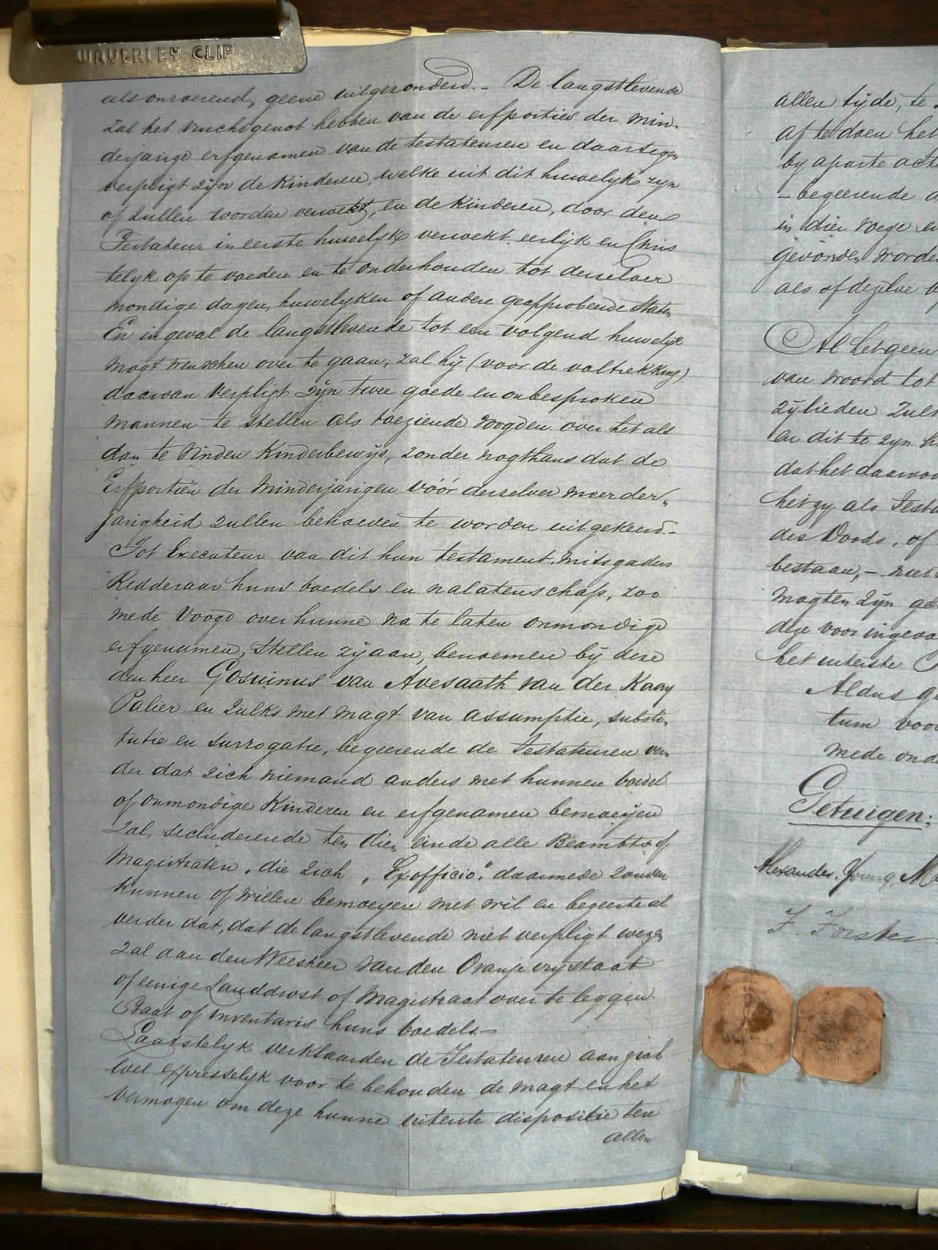 WAVERLEY CLIP
als onroerend, geene uitgezonderd. — De langstlevende
zal het vruchtgenot hebben van de erfportiën der min-
derjarige erfgenamen van de testateuren en daartegen
verpligt zijn de Kinderen, welke uit dit huwelijk zijn
of zullen worden verwekt, en de Kinderen, door den
Testateur in eerste huwelijk verwekt eerlijk en Chris
telijk op te voeden en te onderhouden tot derzelver
mondige dagen, huwelijken of andere geapprobeerde Staten
En ingeval de langstlevende tot een volgend huwelijk
mogt wenschen over te gaan, zal hij (voor de voltrekking)
daarvan verpligt zijn twee goede en onbesproken
mannen te stellen als toeziende voogden over het als
dan te vinden Kinderbewijs, zonder nogthans dat de
Erfportiën der Minderjarigen vóór derzelver meerder-
jarigheid zullen behoeden te worden uitgekeerd. —
Tot Executeur van dit hun testament, mitsgaders
Redderaar huns boedels en nalatenschap, zoo
mede Voogd over hunne na te laten onmondige
erfgenamen, stellen zij aan, benoemen bij deze
den heer Gosuinus van Avesaath van der Kaay
Palier en zulks met magt van assumptie, substi-
tutie en surrogatie, begeerende de Testateuren ver-
der dat zich niemand anders met hunnen boedel
of onmondige Kinderen en erfgenamen bemoeijen
zal, secluderende ten dien einde alle Beambten of
Magistraten, die zich "Exofficio" daarmede zouden
kunnen of willen bemoeyen met wil en begeerte al
verder dat, dat de langstlevende niet verpligt wezen
zal aan den Weesheer van den Oranjevrystaat
of eenige Landdrost of Magistraat over te leggen
Staat of Inventaris huns boedels —
Laatstelijk verklaarden de Testateuren aan zich
wel expresselyk voor te behouden de magt en het
vermogen om deze hunne uiterste dispositie ten
allen
allen tijde, te
af te doen het
by aparte acte
— begeerende
in dier voege
gevonden worde
als of dezelve
Al hetgeen
van woord tot
zylieden
en dit te zyn
dat het daarvoor
hetzy als Testa
des Doods, of
bestaan, — niet
mogten zyn
deze voor ingevoe
het uiterste
Aldus
tum voor
mede ond
Getuigen:
Alexander Young